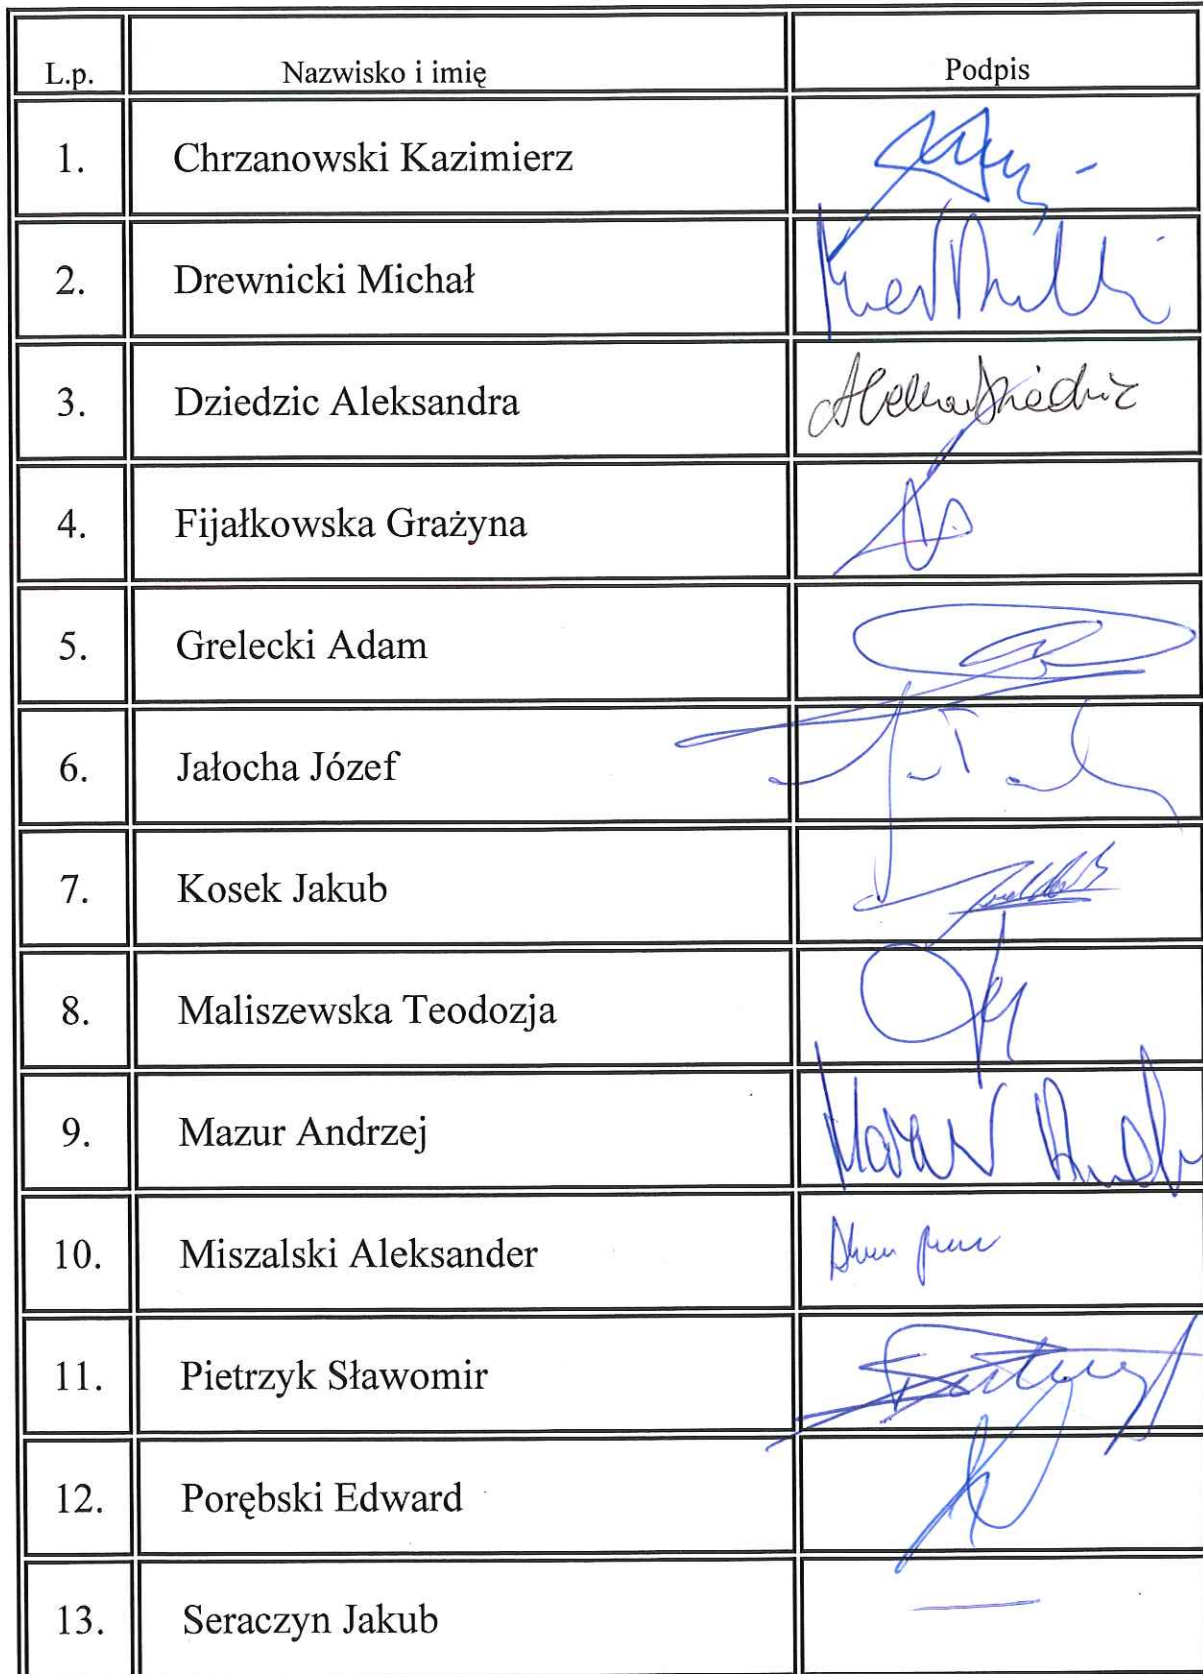 L.p. Nazwisko i imię Podpis
1. Chrzanowski Kazimierz
2. Drewnicki Michał
3. Dziedzic Aleksandra
4. Fijałkowska Grażyna
5. Grelecki Adam
6. Jałocha Józef
7. Kosek Jakub
8. Maliszewska Teodozja
9. Mazur Andrzej Mazur
10. Miszalski Aleksander
11. Pietrzyk Sławomir
12. Porębski Edward
13. Seraczyn Jakub —